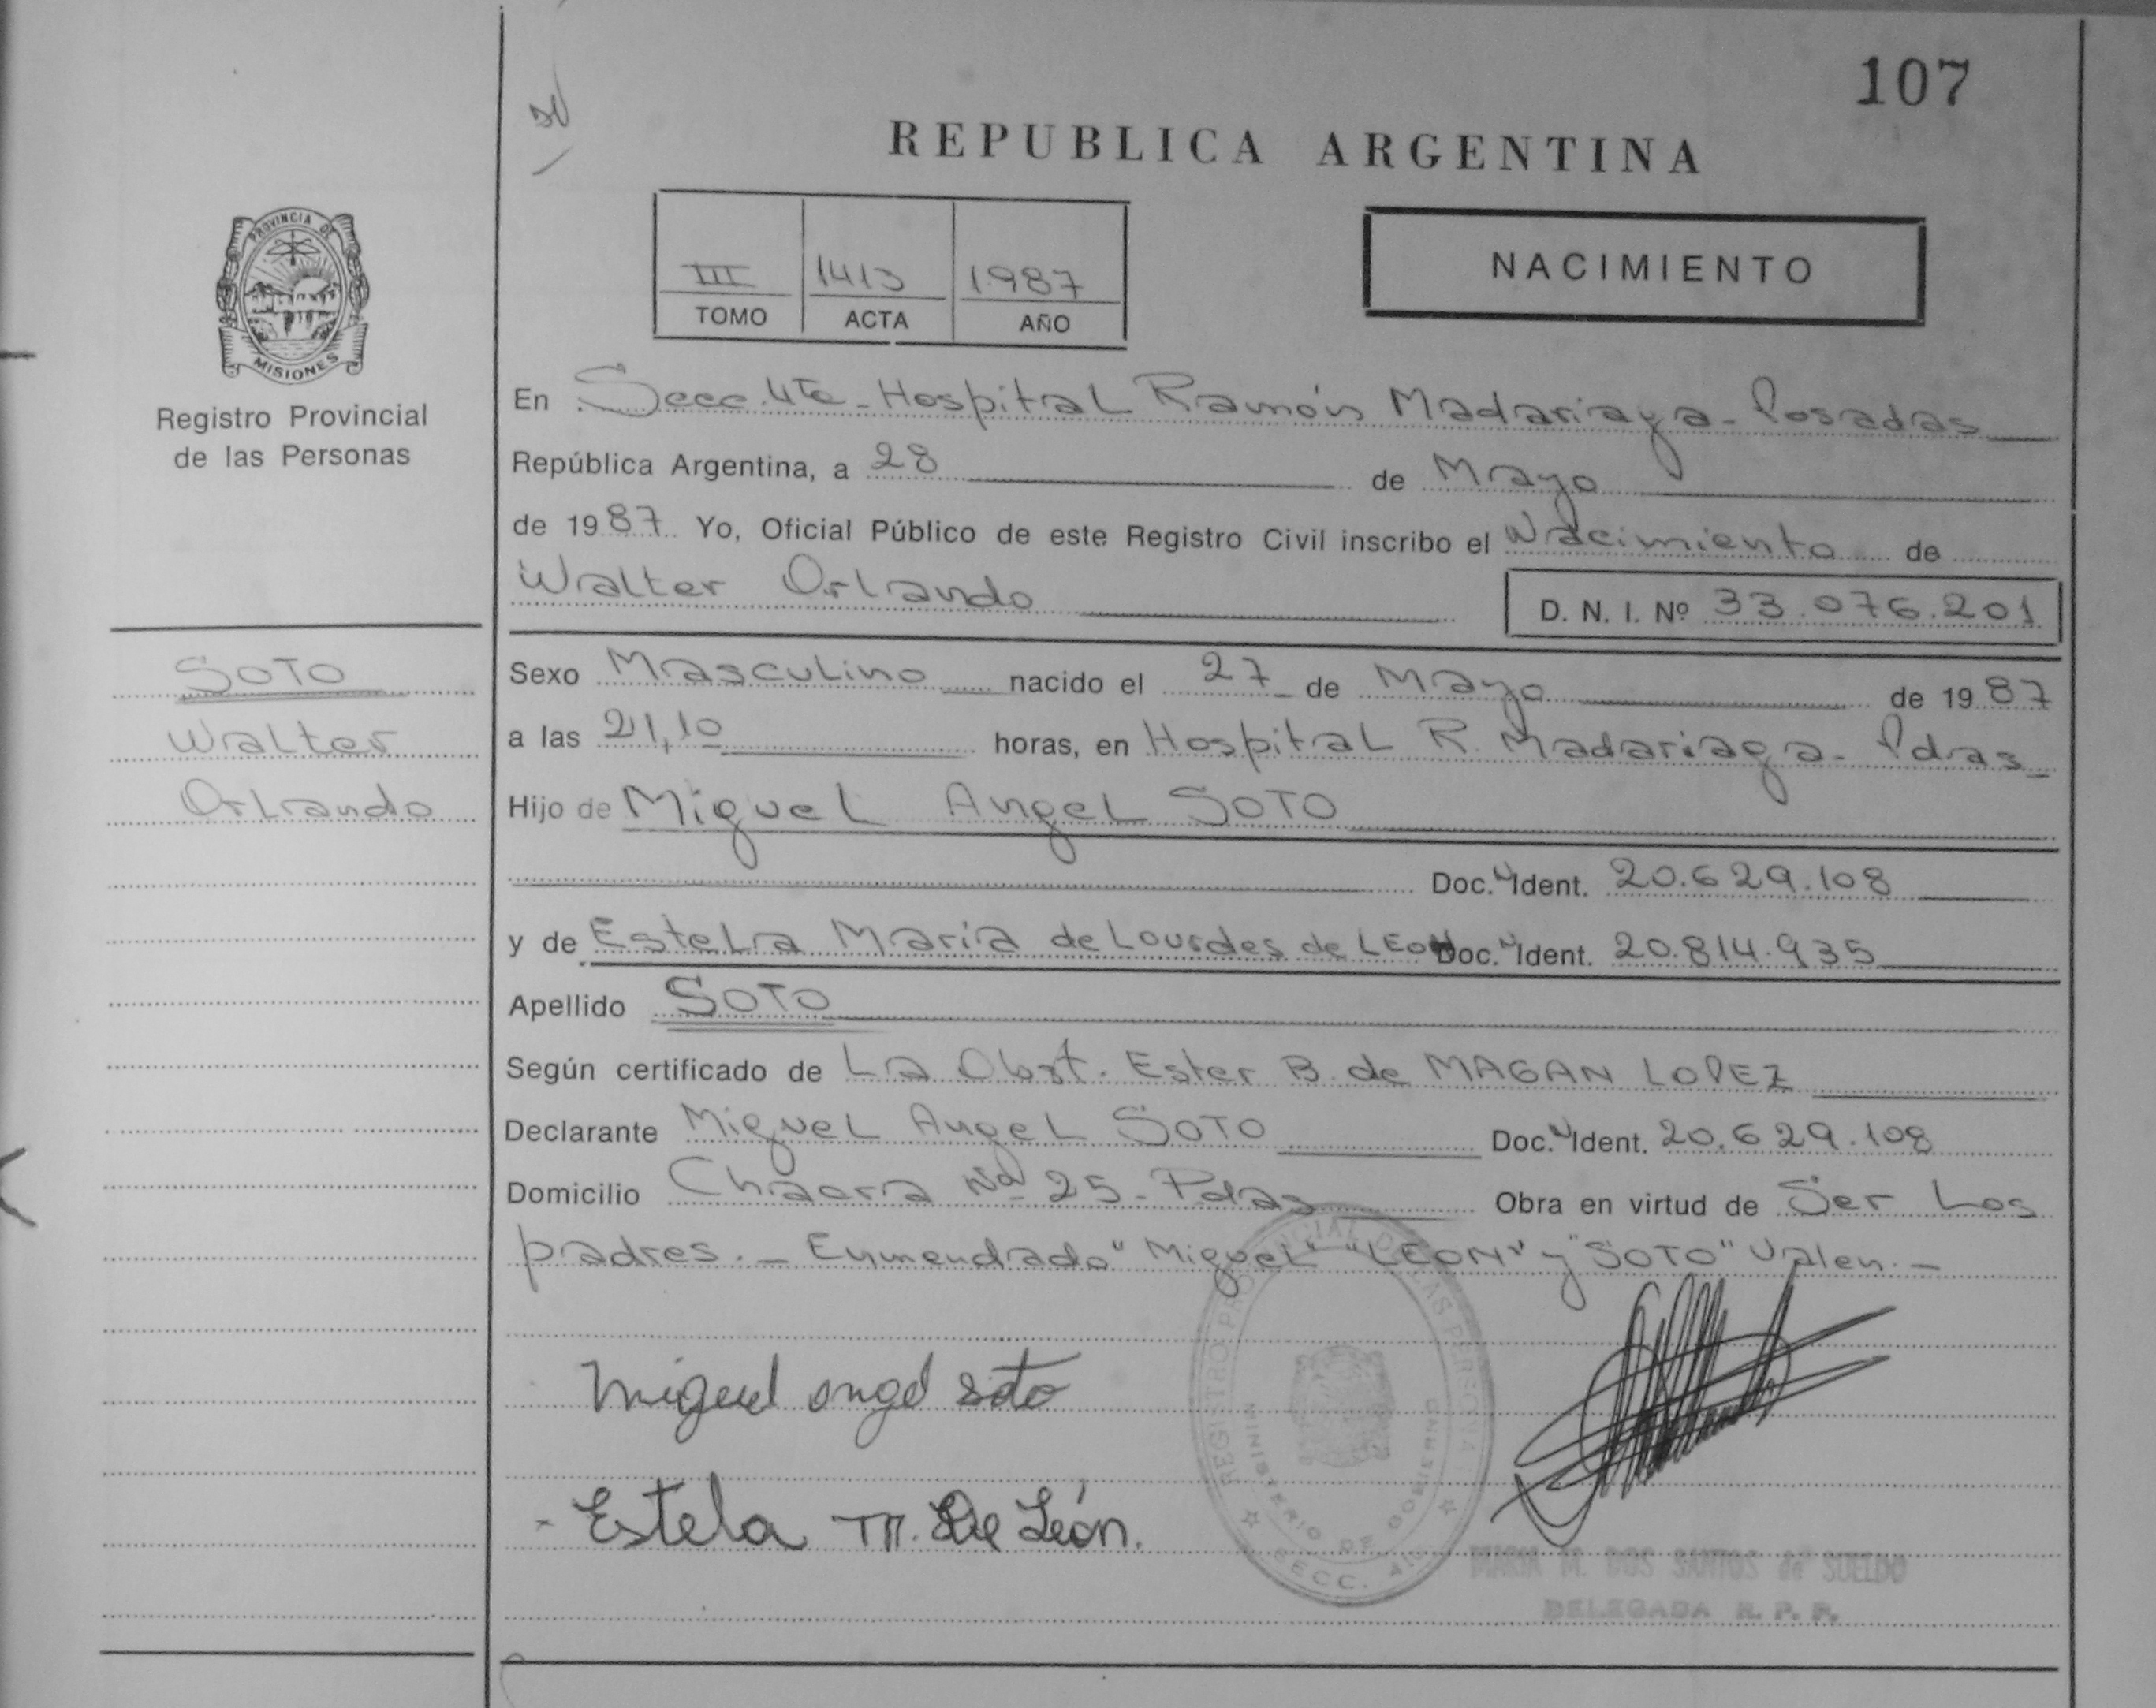 107
REPUBLICA ARGENTINA
III 1413 1987
TOMO ACTA AÑO
NACIMIENTO
PROVINCIA DE
MISIONES
Registro Provincial
de las Personas
SOTO
Walter
Orlando
En Secc. 4ta - Hospital Ramón Madariaga - Posadas
República Argentina, a 28 de Mayo
de 1987. Yo, Oficial Público de este Registro Civil inscribo el Nacimiento de
Walter Orlando D. N. I. Nº 33.076.201
Sexo Masculino nacido el 27 de Mayo de 1987
a las 21,10 horas, en Hospital R. Madariaga - Pdas -
Hijo de Miguel Angel SOTO
Doc. Ident. 20.629.108
y de Estela María de Lourdes de LEON Doc. Ident. 20.814.935
Apellido SOTO
Según certificado de La Obst. Ester B. de MAGAN LOPEZ
Declarante Miguel Angel SOTO Doc. Ident. 20.629.108
Domicilio Chacra Nº 25 - Pdas Obra en virtud de Ser Los
padres. - Enmendado "Miguel" "LEON" y "SOTO" Valen. -
Miguel angel soto
- Estela M. De León.
REGISTRO PROVINCIAL DE LAS PERSONAS
MINISTERIO DE GOBIERNO
SECC. 4ta
MARIA M. DOS SANTOS de SUELDO
DELEGADA R. P. P.